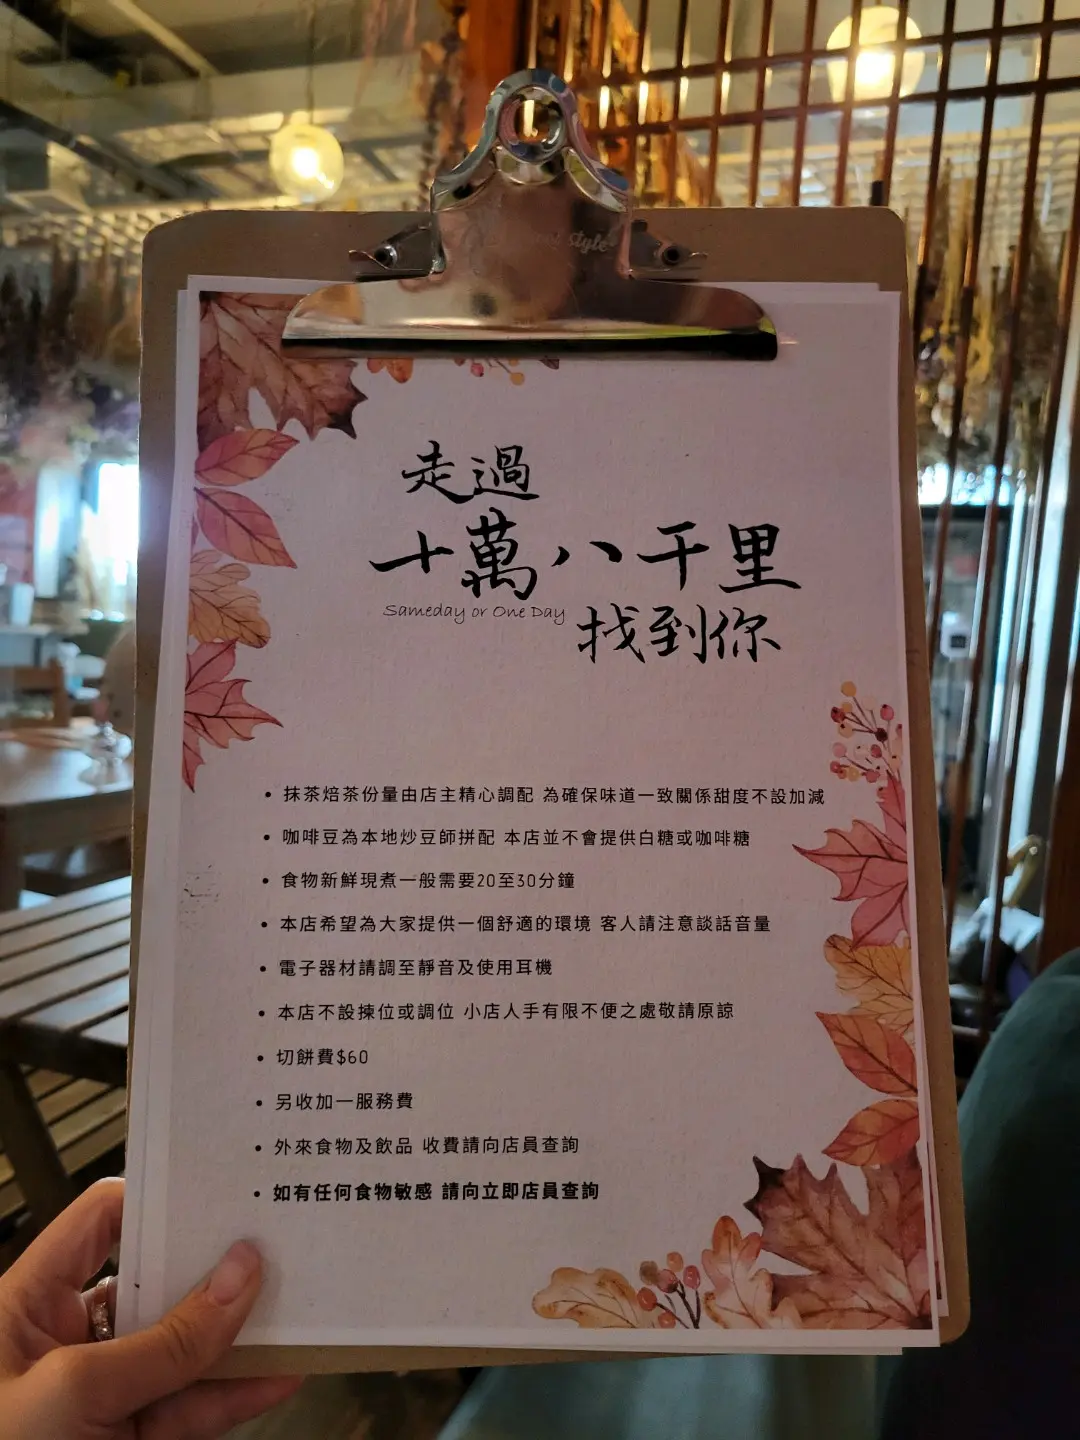 style
走過
十萬八千里
Sameday or One Day
找到你
• 抹茶焙茶份量由店主精心調配 為確保味道一致關係甜度不設加減
• 咖啡豆為本地炒豆師拼配 本店並不會提供白糖或咖啡糖
• 食物新鮮現煮一般需要20至30分鐘
• 本店希望為大家提供一個舒適的環境 客人請注意談話音量
• 電子器材請調至靜音及使用耳機
• 本店不設揀位或調位 小店人手有限不便之處敬請原諒
• 切餅費$60
• 另收加一服務費
• 外來食物及飲品 收費請向店員查詢
• 如有任何食物敏感 請向立即店員查詢